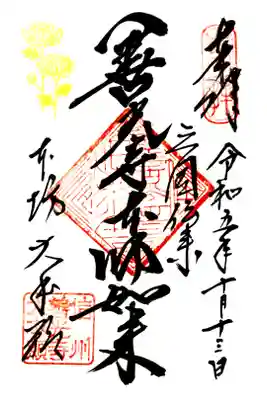 奉拝
令和五年十月十三日
三国伝来
善光寺本師如来
本坊 大本願
信州